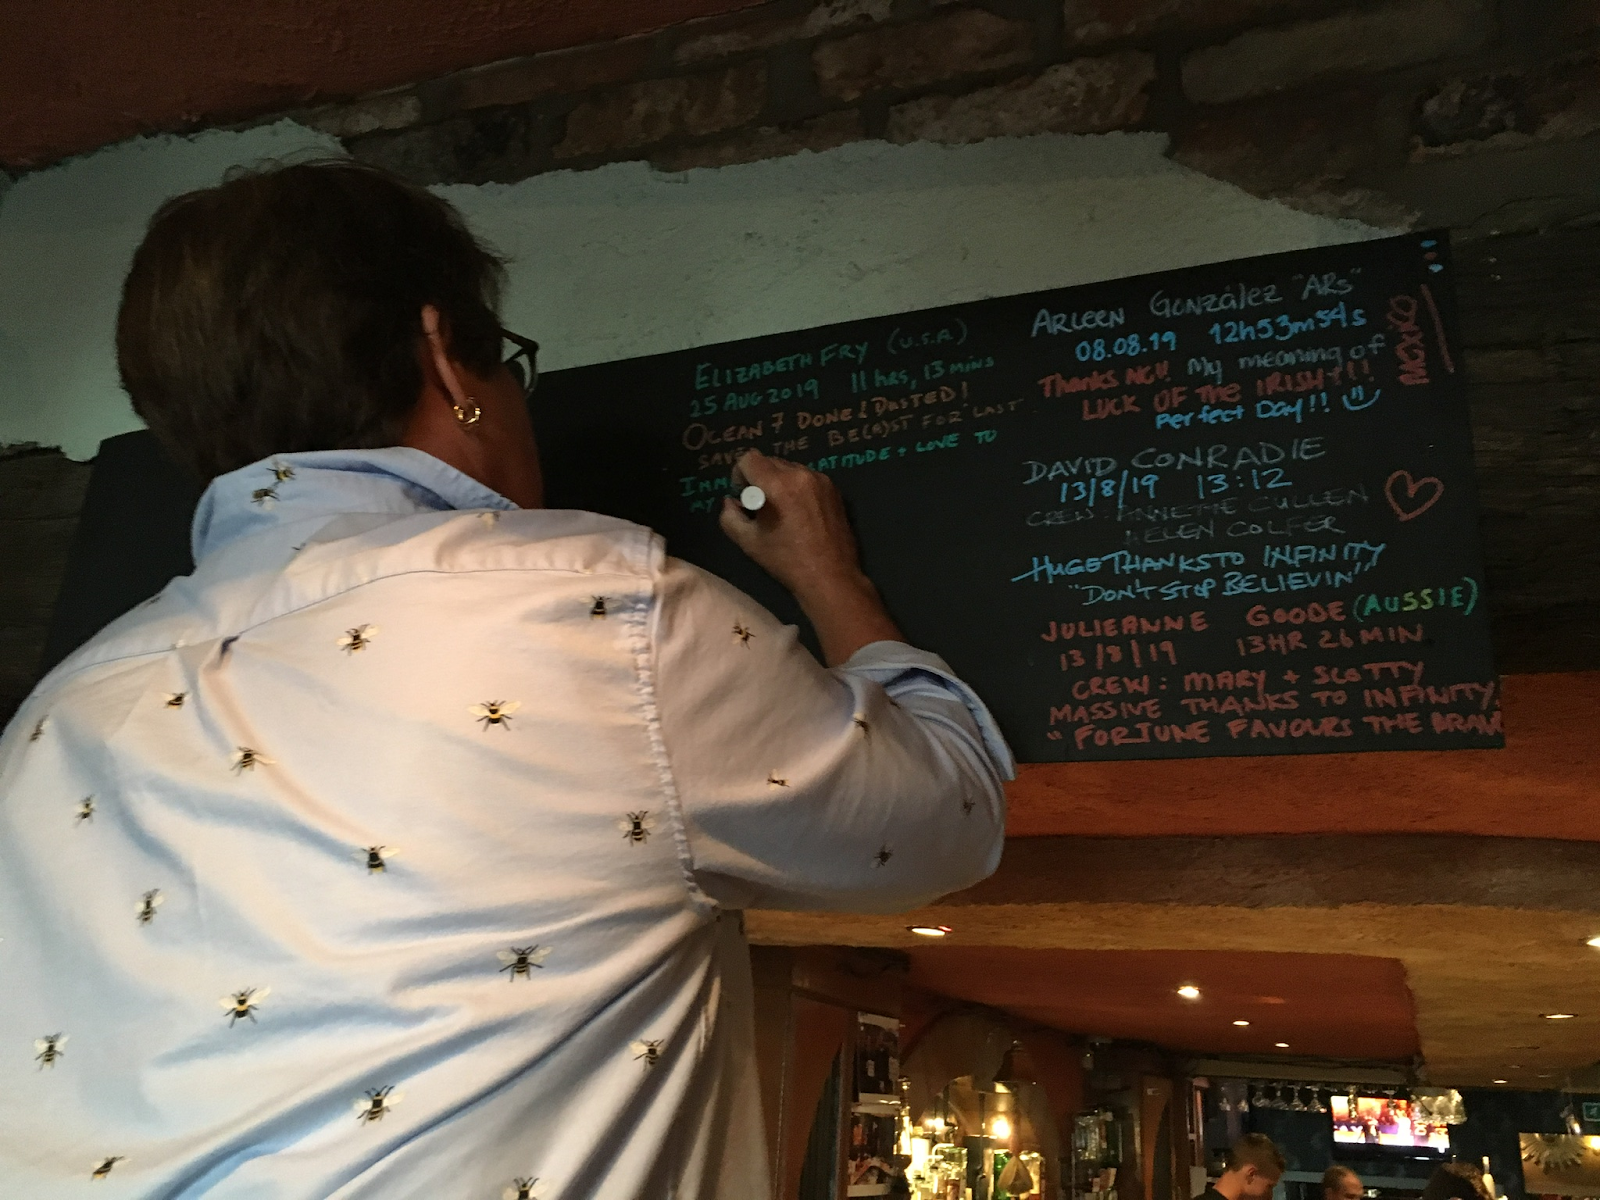 ELIZABETH FRY (U.S.A)
25 AUG 2019 11 hrs, 13 mins
OCEAN 7 DONE & DUSTED!
SAVED THE BE(A)ST FOR LAST
ATITUDE + LOVE TO
MY
ARLEEN GONZáLEZ "ARs"
08.08.19 12h53m54s
MEXICO
Thanks NCII My meaning of
LUCK OF THE IRISH!!!
Perfect Day!!
DAVID CONRADIE
13/8/19 13:12
CREW: ANNETTE CULLEN
HELEN COLFER
HUGE THANKS TO INFINITY
"DON'T STOP BELIEVIN"
JULIEANNE GOODE (AUSSIE)
13/8/19 13HR 26 MIN
CREW: MARY + SCOTTY
MASSIVE THANKS TO INFINITY.
"FORTUNE FAVOURS THE